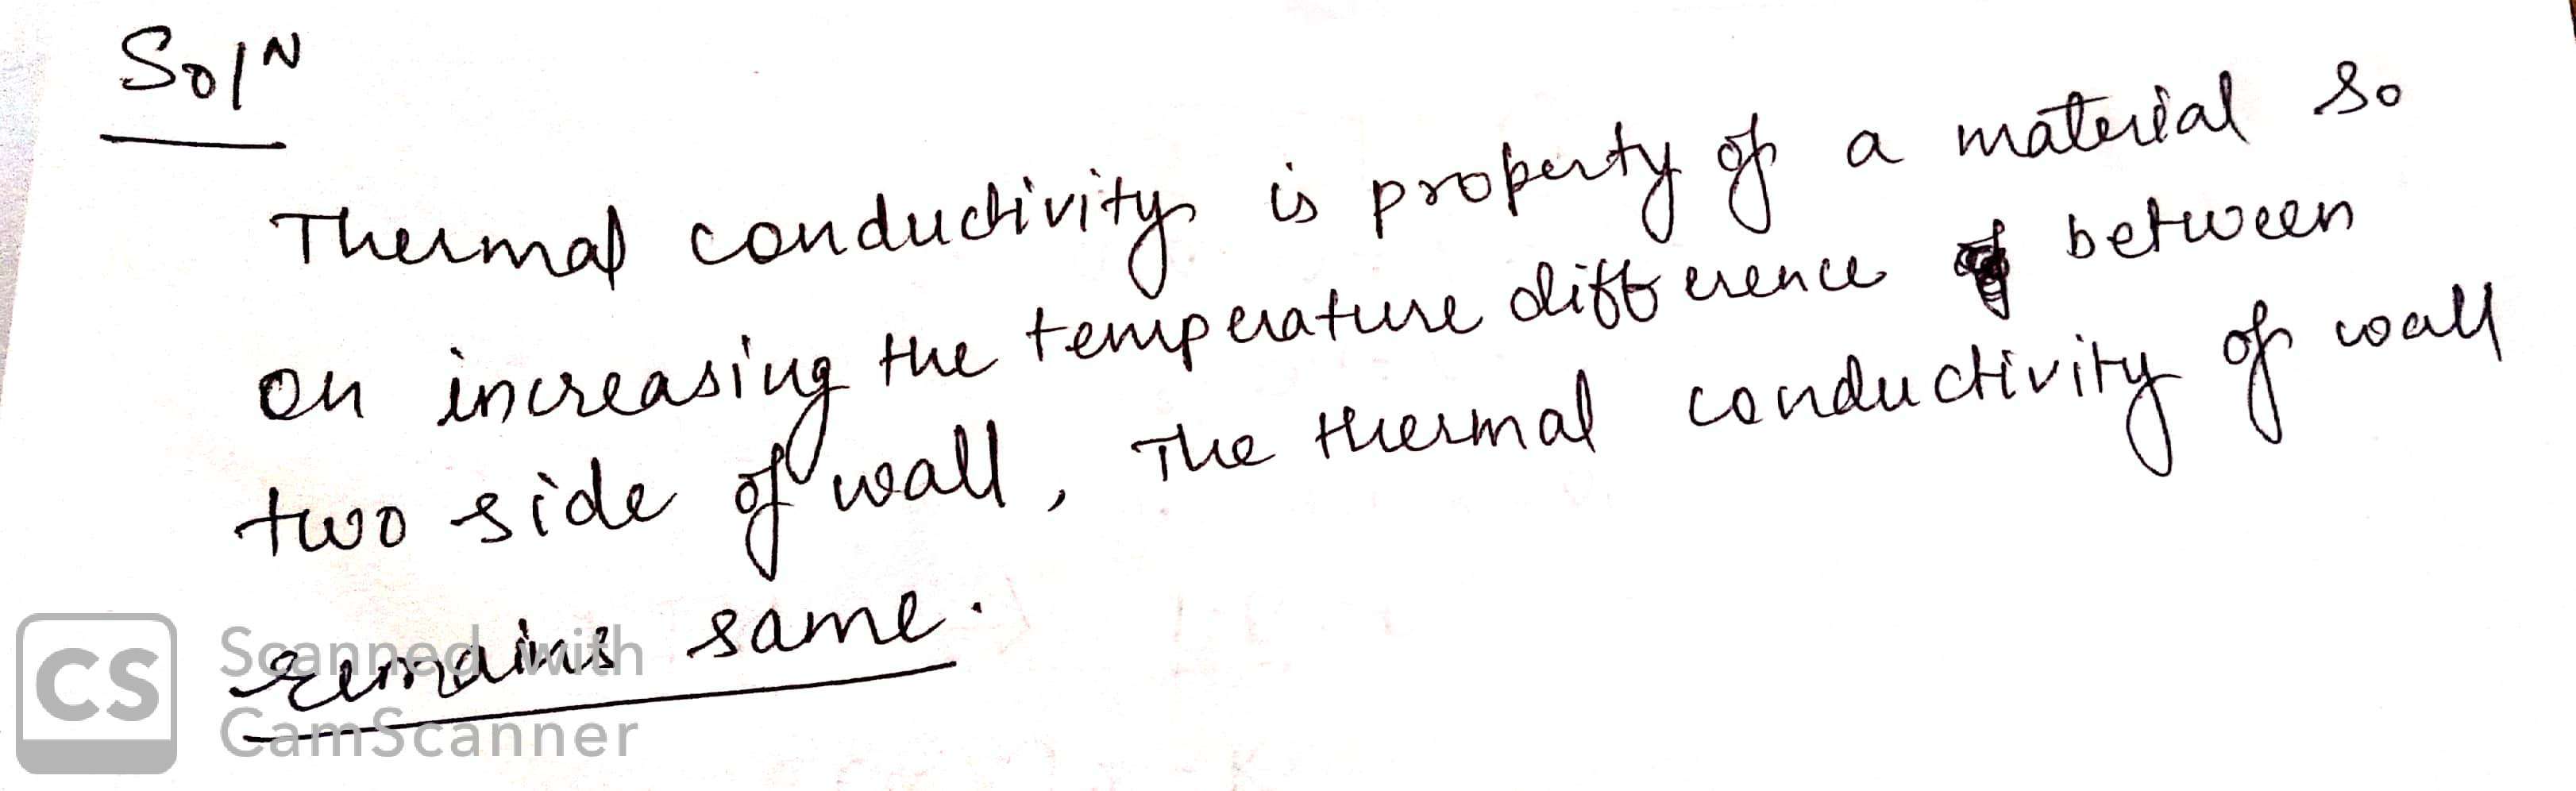 Sol^N
Thermal conductivity is property of a material so
on increasing the temperature difference between
two side of wall, The thermal conductivity of wall
remains same.
CS Scanned with
CamScanner